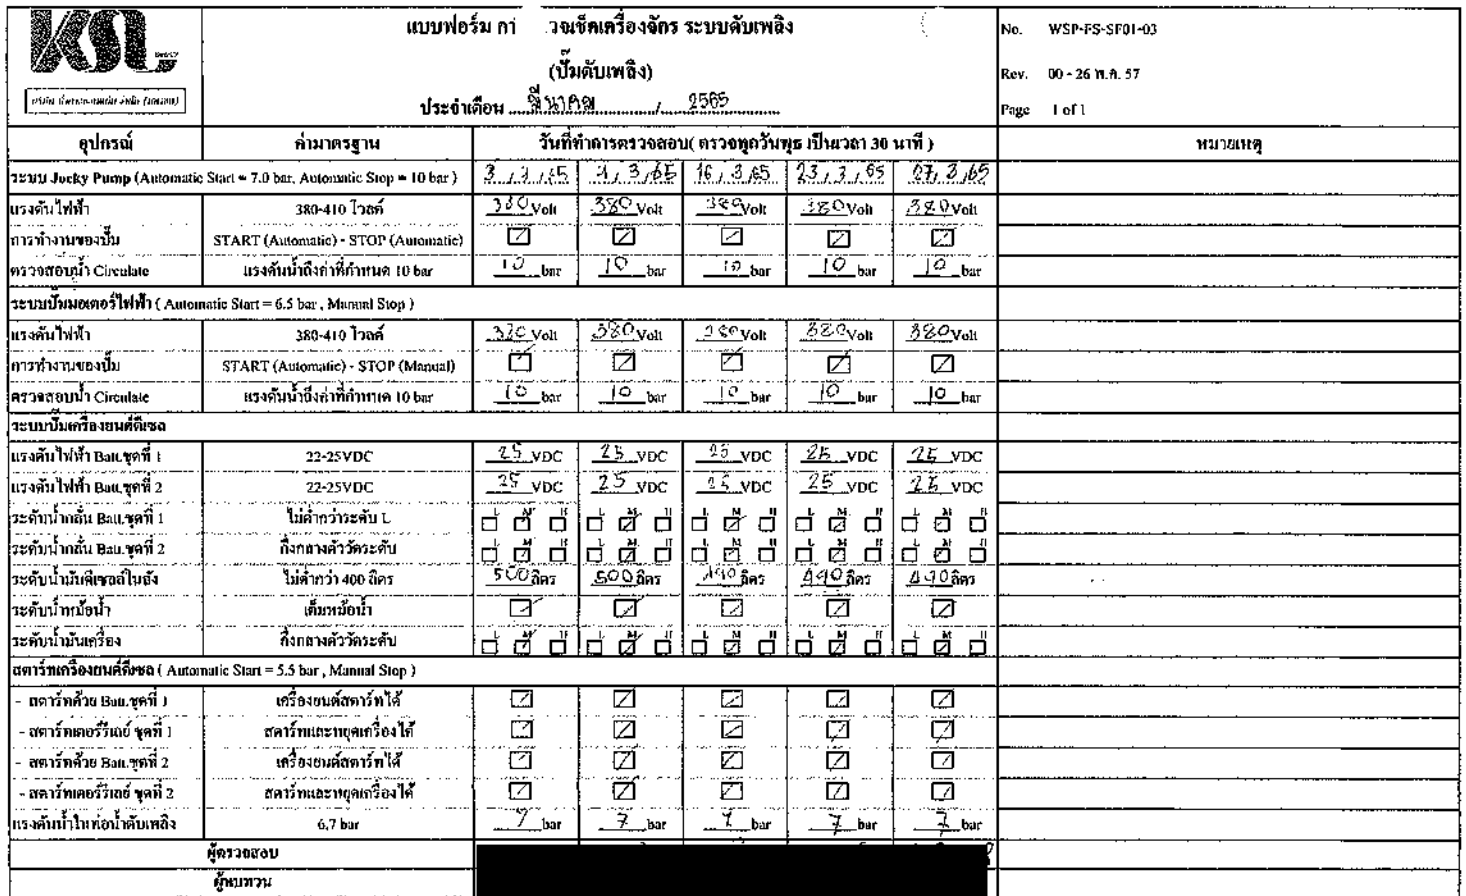 KSL
แบบฟอร์ม กา วจเช็คเครื่องจักร ระบบดับเพลิง
(ปั๊มดับเพลิง)
ประจำเดือน มีนาคม / 2565
No. WSP-FS-SF01-03
Rev. 00 - 26 พ.ค. 57
Page 1 of 1
อุปกรณ์ ค่ามาตรฐาน วันที่ทำการตรวจสอบ( ตรวจทุกวันพุธ เป็นเวลา 30 นาที ) หมายเหตุ
ระบบ Jocky Pump (Automatic Start = 7.0 bar, Automatic Stop = 10 bar ) 16/3/65 23/3/65
แรงดันไฟฟ้า 380-410 โวลต์ 380 Volt 380 Volt 380 Volt 380 Volt 380 Volt
การทำงานของปั๊ม START (Automatic) - STOP (Automatic)
ตรวจสอบน้ำ Circulate แรงดันน้ำถึงค่าที่กำหนด 10 bar 10 bar 10 bar 10 bar 10 bar 10 bar
ระบบปั๊มมอเตอร์ไฟฟ้า ( Automatic Start = 6.5 bar , Manual Stop )
แรงดันไฟฟ้า 380-410 โวลต์ Volt 380 Volt 380 Volt 380 Volt 380 Volt
การทำงานของปั๊ม START (Automatic) - STOP (Manual)
ตรวจสอบน้ำ Circulate แรงดันน้ำถึงค่าที่กำหนด 10 bar 10 bar 10 bar 10 bar 10 bar 10 bar
ระบบปั๊มเครื่องยนต์ดีเซล
แรงดันไฟฟ้า Batt.ชุดที่ 1 22-25VDC 25 VDC 25 VDC 25 VDC 25 VDC 25 VDC
แรงดันไฟฟ้า Batt.ชุดที่ 2 22-25VDC 25 VDC 25 VDC 25 VDC 25 VDC 25 VDC
ระดับน้ำกลั่น Batt.ชุดที่ 1 ไม่ต่ำกว่าระดับ L L M H L M H L M H L M H L M H
ระดับน้ำกลั่น Batt.ชุดที่ 2 กึ่งกลางตัววัดระดับ L M H L M H L M H L M H L M H
ระดับน้ำมันดีเซลในถัง ไม่ต่ำกว่า 400 ลิตร 500 ลิตร 500 ลิตร 490 ลิตร 490 ลิตร 490 ลิตร
ระดับน้ำหม้อน้ำ เต็มหม้อน้ำ
ระดับน้ำมันเครื่อง กึ่งกลางตัววัดระดับ L M H L M H L M H L M H L M H
สตาร์ทเครื่องยนต์ดีเซล ( Automatic Start = 5.5 bar , Manual Stop )
- สตาร์ทด้วย Batt.ชุดที่ 1 เครื่องยนต์สตาร์ทได้
- สตาร์ทเตอร์รีเลย์ ชุดที่ 1 สตาร์ทและหยุดเครื่องได้
- สตาร์ทด้วย Batt.ชุดที่ 2 เครื่องยนต์สตาร์ทได้
- สตาร์ทเตอร์รีเลย์ ชุดที่ 2 สตาร์ทและหยุดเครื่องได้
แรงดันน้ำในท่อน้ำดับเพลิง 6,7 bar 7 bar 7 bar 7 bar 7 bar 7 bar
ผู้ตรวจสอบ
ผู้ทบทวน